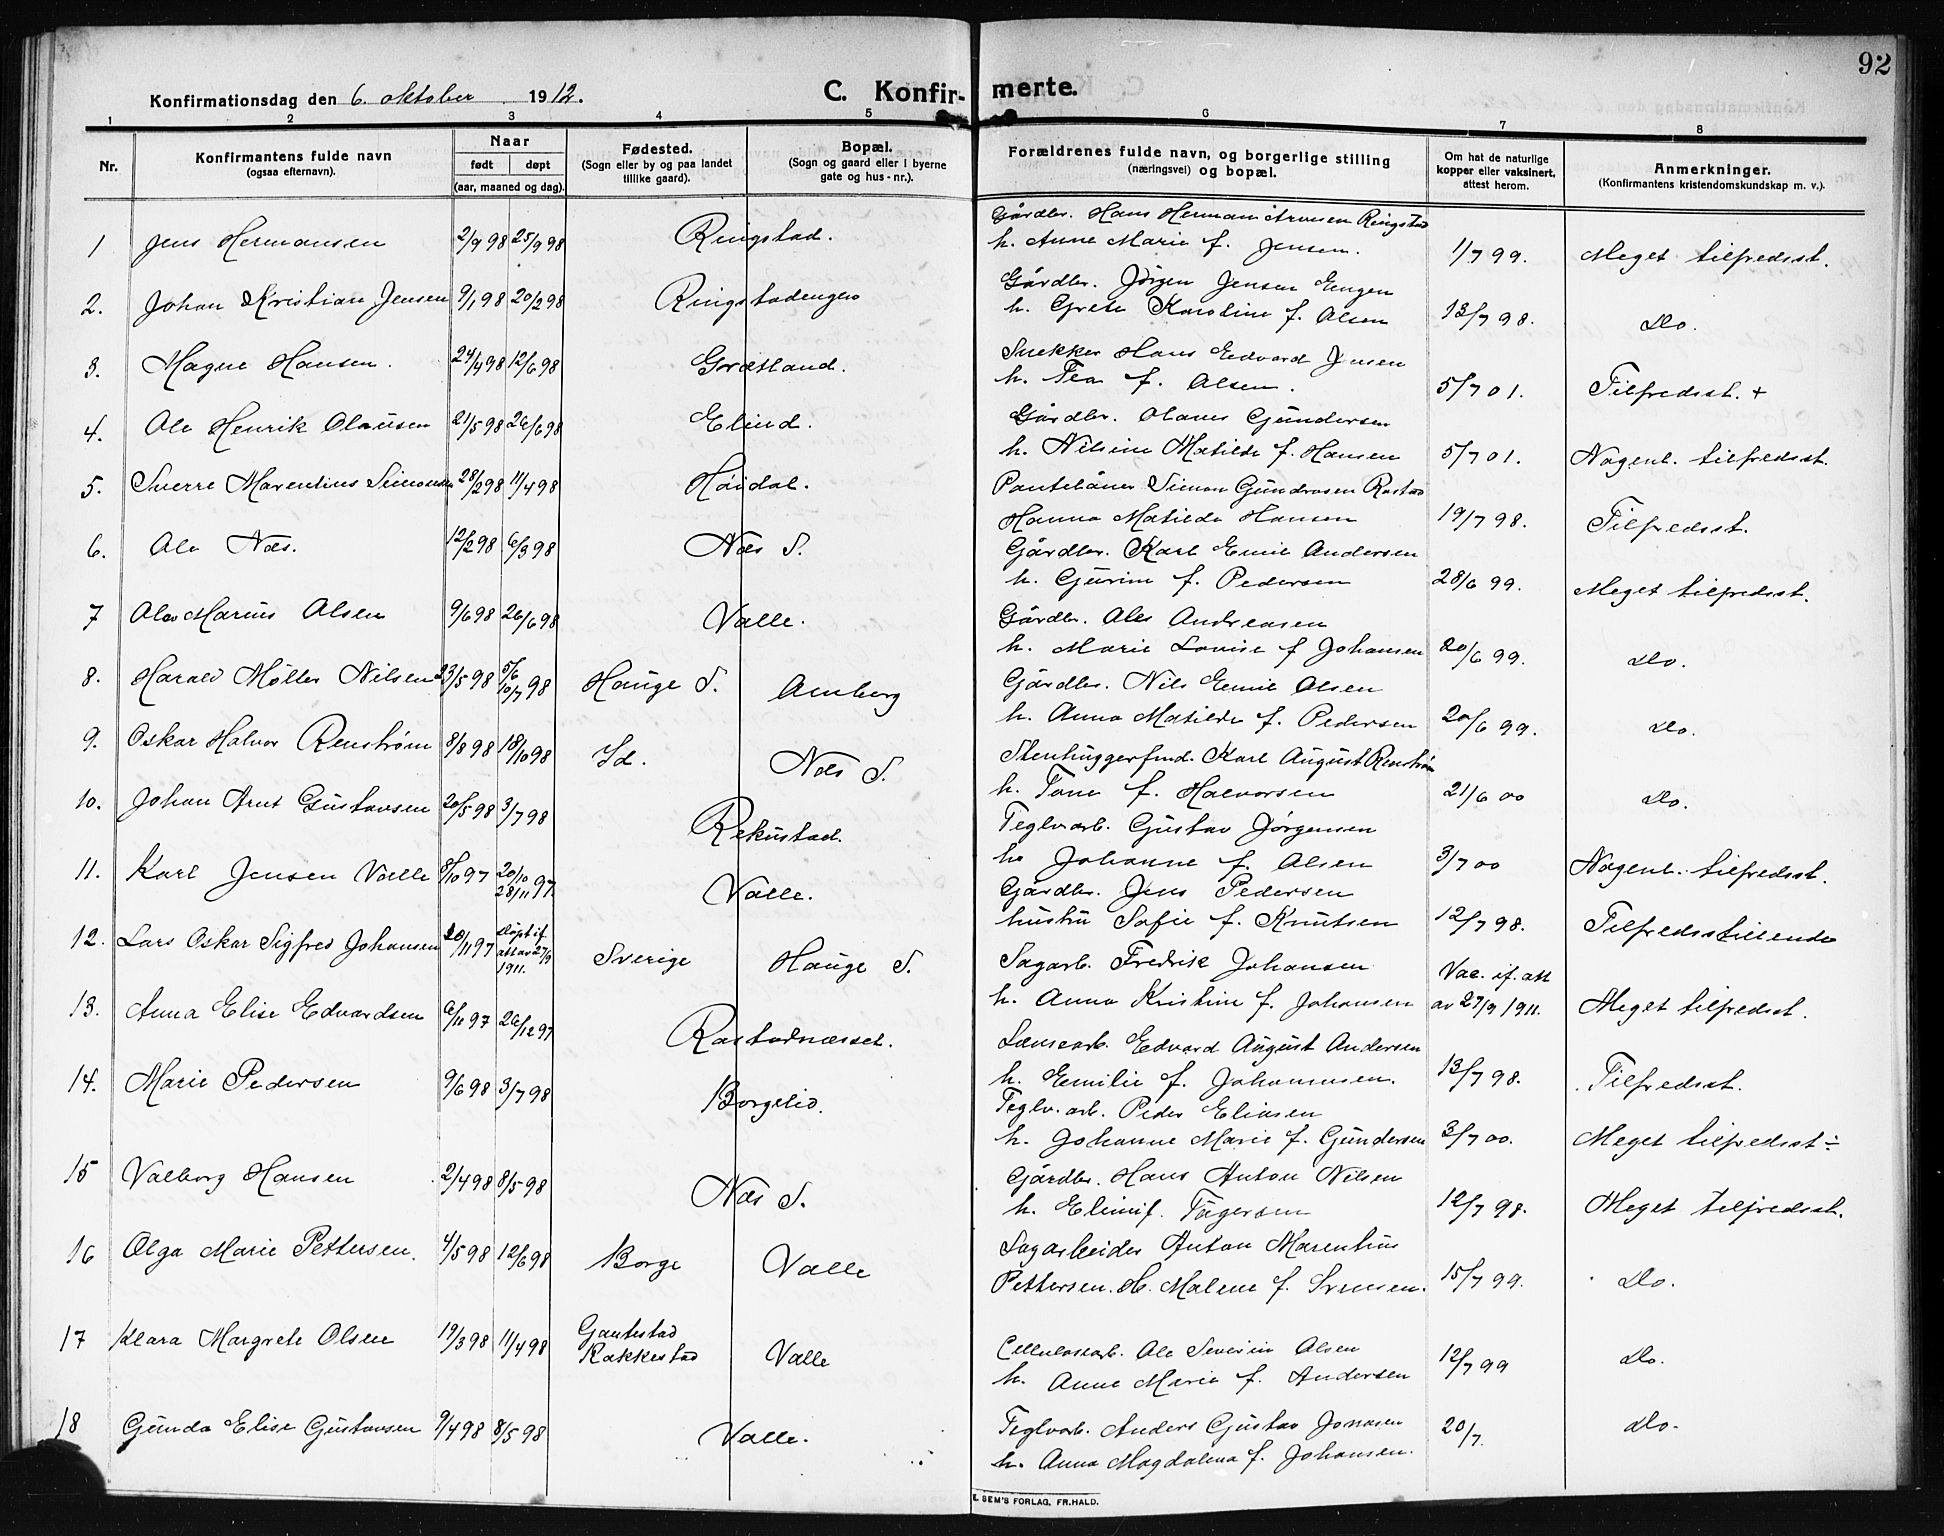 92
Konfirmationsdag den 6. oktober 1912.
C. Konfirmerte.
1 2 3 4 5 6 7 8
Nr.
Konfirmantens fulde navn
(ogsaa efternavn).
Naar
født døpt
(aar, maaned og dag).
Fødested.
(Sogn eller by og paa landet
tillike gaard).
Bopæl.
(Sogn og gaard eller i byerne
gate og hus-nr.).
Forældrenes fulde navn, og borgerlige stilling
(næringsvei) og bopæl.
Om hat de naturlige
kopper eller vaksinert,
attest herom.
Anmerkninger.
(Konfirmantens kristendomskundskap m. v.).
1 Jens Hermansen 2/9 98 25/9 98 Ringstad. Gårdbr. Hans Herman Arnesen Ringstad
h. Anne Marie f. Jensen. 1/7 99. Meget tilfredsst.
2. Johan Kristian Jensen 9/1 98 20/2 98 Ringstadengen Gårdbr. Jørgen Jensen Engen
h. Grete Karoline f. Olsen 13/7 98. Do.
3. Magne Hansen. 24/4 98 12/6 98 Grætland. Snekker Hans Edvard Jensen
h. Tea f. Olsen. 5/7 01. Tilfredsst. +
4. Ole Henrik Olausen 21/5 98 26/6 98 Elind. Gårdbr. Olaves Gundersen
h. Nilsine Matilde f. Hansen 5/7 01. Nogenl. tilfredsst.
5. Sverre Marentius Simonsen 28/2 98 11/4 98 Høidal. Simon Gundersen Rostad
Hanna Matilde Hansen 19/7 98. Tilfredsst.
6. Ole Næs. 12/2 98 6/3 98 Næs S. Gårdbr. Karl Emil Andersen
h. Gurine f. Pedersen 28/6 99. Meget tilfredsst.
7 Olav Marius Olsen 9/6 98 26/6 98 Valle. Gårdbr. Ole Andreasen
h. Marie Lovise f Johansen 20/6 99. Do.
8. Harald Møller Nilsen 23/5 98 5/6 10/7 98 Hauge S. Amberg Gårdbr. Nils Emil Olsen
h. Anna Matilde f. Pedersen 20/6 99. Do.
9. Oskar Halvor Renstrøm 8/8 98 18/10 98 Id. Næs S. Stenhuggerfmd. Karl August Renstrøm
h. Tone f. Halvorsen 21/6 00 Do.
10. Johan Arnt Gustavsen 20/5 98 3/7 98 Rekustad. Teglv.arb. Gustav Jørgensen
h. Johanne f. Olsen 3/7 00 Nogenl. tilfredsst.
11. Karl Jensen Valle 8/10 97 20/10 28/11 97. Valle. Gårdbr. Jens Pedersen
hustru Sofie f. Knutsen 12/7 98. Tilfredsstillende
12. Lars Oskar Sigfred Johansen 20/11 97 Døpt if. att av 27/9 1911. Sverige Hauge S. Sagarb. Fredrik Johansen
h. Anna Kristine f. Johansen Vac. if. att av 27/9 1911. Meget tilfredsst.
13. Anna Elise Edvardsen 6/11 97 26/12 97 Rostadnæsset. Lænsearb. Edvard August Andersen
h. Emilie f. Johannesen. 13/7 98. Tilfredsst.
14. Marie Pedersen 9/6 98 3/7 98 Borgelid. Teglv. arb. Peder Eliasen
h. Johanne Marie f. Gundersen 3/7 00. Meget tilfredsst ÷
15 Valborg Hansen 2/4 98 8/5 98 Næs S. Gårdbr. Hans Anton Nilsen
h. Eline f. Tagersen 12/7 98. Meget tilfredsst.
16 Olga Marie Pettersen. 4/5 98 12/6 98 Borge Valle Sagarbeider Anton Marentius
Pettersen. H. Malene f. Svensen. 15/7 99. Do.
17 Klara Margrete Olsen 19/3 98 11/4 98 Gautestad Rakkestad Valle Cellulosearb. Ole Severin Olsen
h. Anne Marie f. Andersen 12/7 99 Do.
18 Gunda Elise Gustavsen 9/4 98 8/5 98 Valle. Teglv.arb. Anders Gustav Jonasen
h. Anna Magdalena f. Johansen. 20/7. Do.
E. SEM'S FORLAG, FR.HALD.